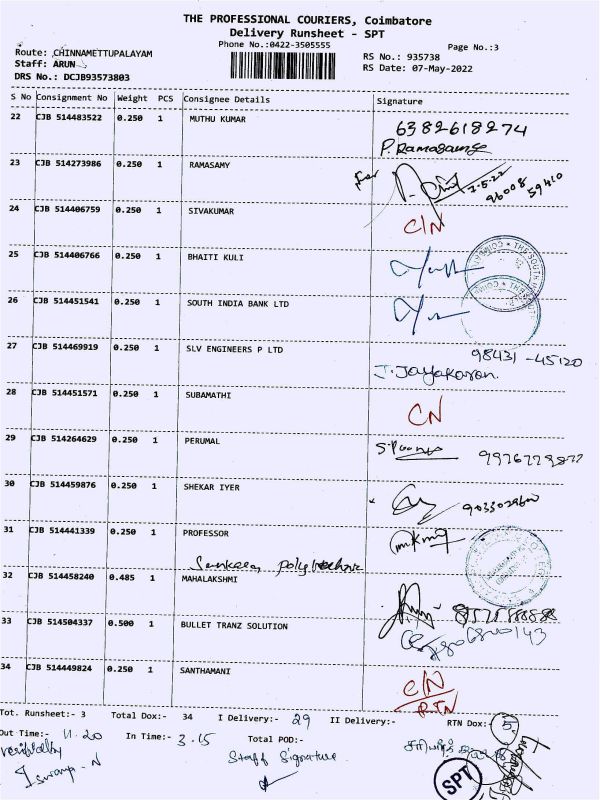 THE PROFESSIONAL COURIERS, Coimbatore
Delivery Runsheet - SPT
Phone No.:0422-3505555
Page No.:3
Route: CHINNAMETTUPALAYAM
RS No.: 935738
Staff: ARUN
RS Date: 07-May-2022
DRS No.: DCJB93573803
S No Consignment No Weight PCS Consignee Details Signature
22 CJB 514483522 0.250 1 MUTHU KUMAR
6382618274
23 CJB 514273986 0.250 1 RAMASAMY
for
24 CJB 514406759 0.250 1 SIVAKUMAR C/N
25 CJB 514406766 0.250 1 BHAITI KULI
26 CJB 514451541 0.250 1 SOUTH INDIA BANK LTD
27 CJB 514469919 0.250 1 SLV ENGINEERS P LTD 98431-45120
J. Jayakaran.
28 CJB 514451571 0.250 1 SUBAMATHI CN
29 CJB 514264629 0.250 1 PERUMAL
30 CJB 514459876 0.250 1 SHEKAR IYER
31 CJB 514441339 0.250 1 PROFESSOR
32 CJB 514458240 0.485 1 MAHALAKSHMI
33 CJB 514504337 0.500 1 BULLET TRANZ SOLUTION
34 CJB 514449824 0.250 1 SANTHAMANI C/N
RTN
Tot. Runsheet:- 3 Total Dox:- 34 I Delivery:- 29 II Delivery:- RTN Dox:- 5
Out Time:- 11.20 In Time:- 3.15 Total POD:-
Staff Signature
SPT